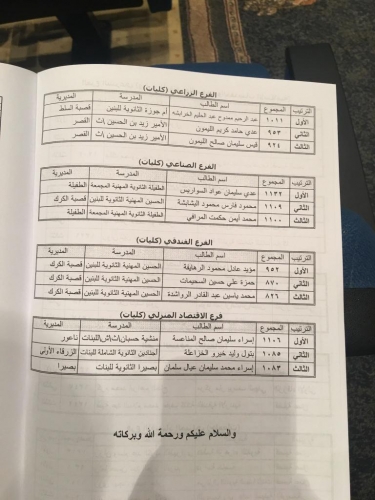 الفرع الزراعي (كليات)
الترتيب المجموع اسم الطالب المدرسة المديرية
الأول ١٠١١ عبد الرحيم ممدوح عبد الحليم الخرابشه أم جوزة الثانوية للبنين قصبة السلط
الثاني ٩٥٣ عدي حامد كريم الليمون الأمير زيد بن الحسين /ث القصر
الثالث ٩٢٤ قيس سليمان صالح الليمون الأمير زيد بن الحسين /ث القصر
الفرع الصناعي (كليات)
الترتيب المجموع اسم الطالب المدرسة المديرية
الأول ١١٣٢ عدي سليمان عواد السواريس الطفيلة الثانوية المهنية المجمعة الطفيلة
الثاني ١١٠٩ محمود فارس محمود البشابشة الحسين المهنية الثانوية للبنين قصبة الكرك
الثالث ١١٠٠ محمد أيمن حكمت المرافي الطفيلة الثانوية المهنية المجمعة الطفيلة
الفرع الفندقي (كليات)
الترتيب المجموع اسم الطالب المدرسة المديرية
الأول ٩٥٢ مؤيد عادل محمود الرهايفة الحسين المهنية الثانوية للبنين قصبة الكرك
الثاني ٨٧٠ حمزة علي حسين السحيمات الحسين المهنية الثانوية للبنين قصبة الكرك
الثالث ٨٢٦ محمد ياسين عبد القادر الرواشدة الحسين المهنية الثانوية للبنين قصبة الكرك
فرع الاقتصاد المنزلي (كليات)
الترتيب المجموع اسم الطالب المدرسة المديرية
الأول ١١٠٦ إسراء سليمان صالح المناعسة منشية حسبان/ث/ش للبنات ناعور
الثاني ١٠٨٥ بتول وليد خيرو الخزاعلة أجنادين الثانوية الشاملة للبنات الزرقاء الأولى
الثالث ١٠٨٣ إسراء محمد سليمان عيال سلمان بصيرا الثانوية للبنات بصيرا
والسلام عليكم ورحمة الله وبركاته